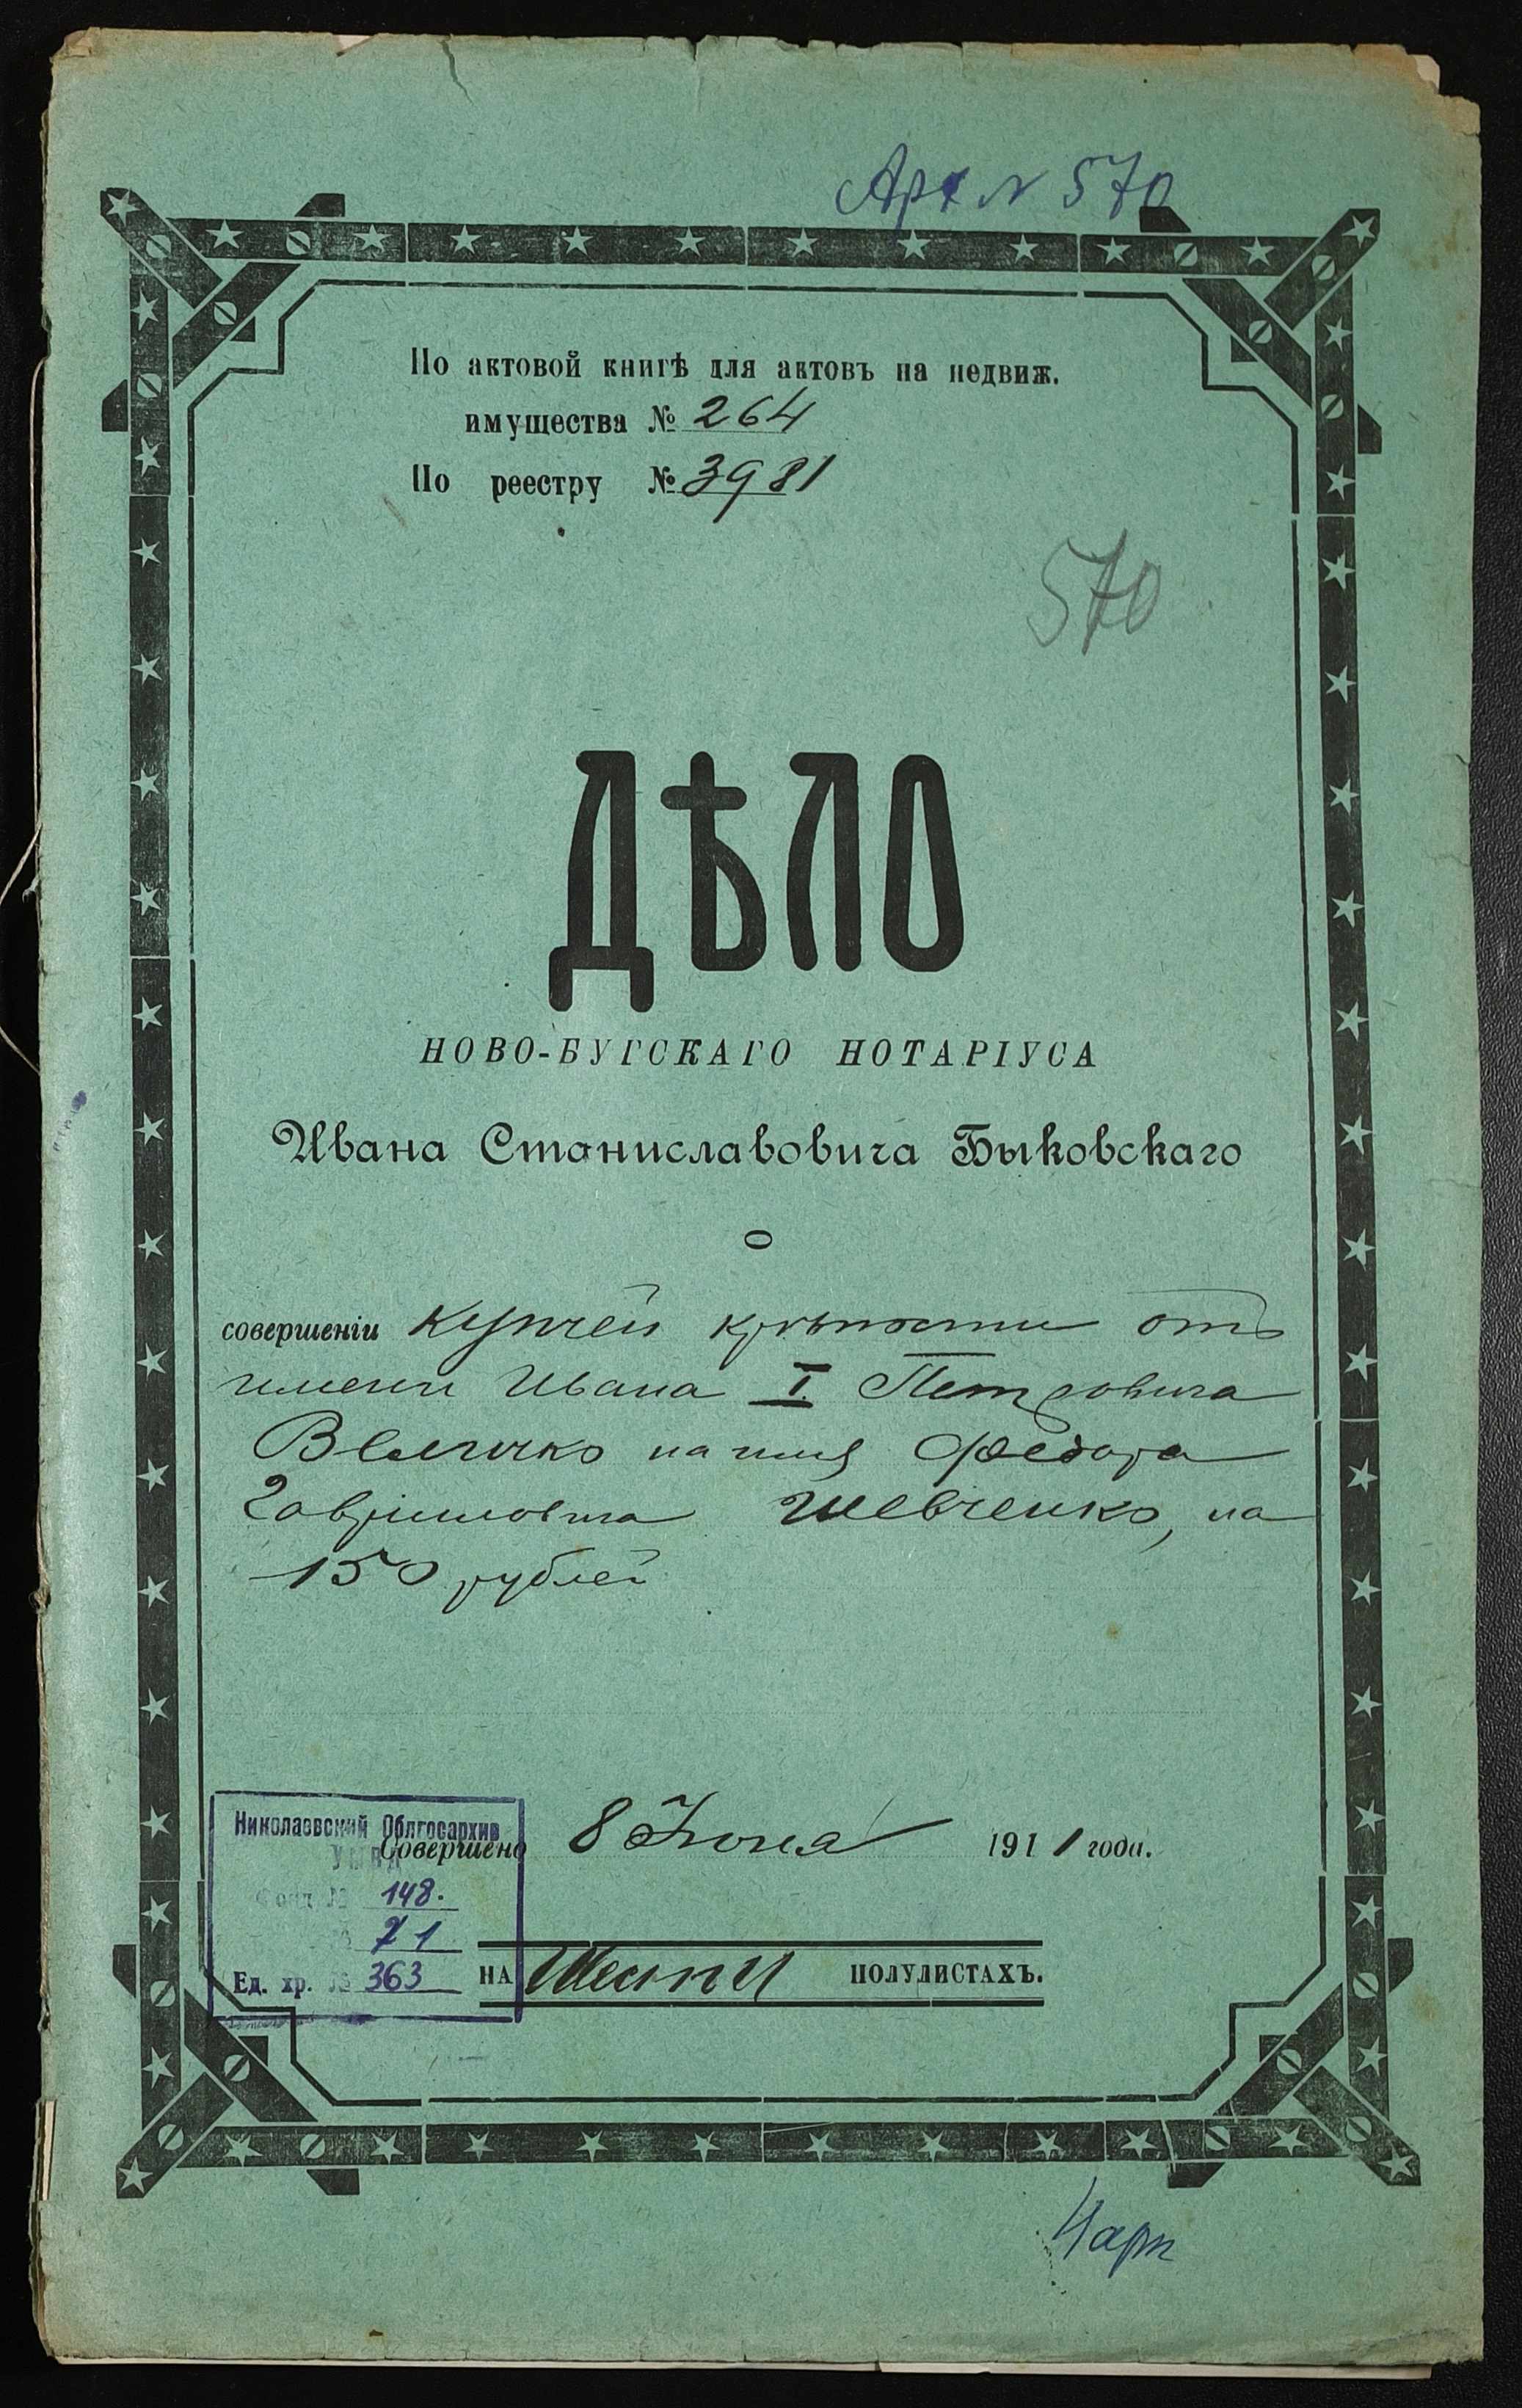 Арх № 570
По актовой книгѣ для актовъ на недвиж.
имущества № 264
По реестру № 3981
570
ДѢЛО
НОВО-БУГСКАГО НОТАРІУСА
Ивана Станиславовича Быковскаго
О
совершеніи купчей крѣпости отъ
имени Ивана I Петровича
Величко на имя Федора
Гавриловича Шевченко, на
150 рублей
Николаевский Облгосархив
УМВД
Совершено 8 Іюня 1911 года.
Фонд № 148.
71
Ед. хр. № 363
НА Шести ПОЛУЛИСТАХЪ.